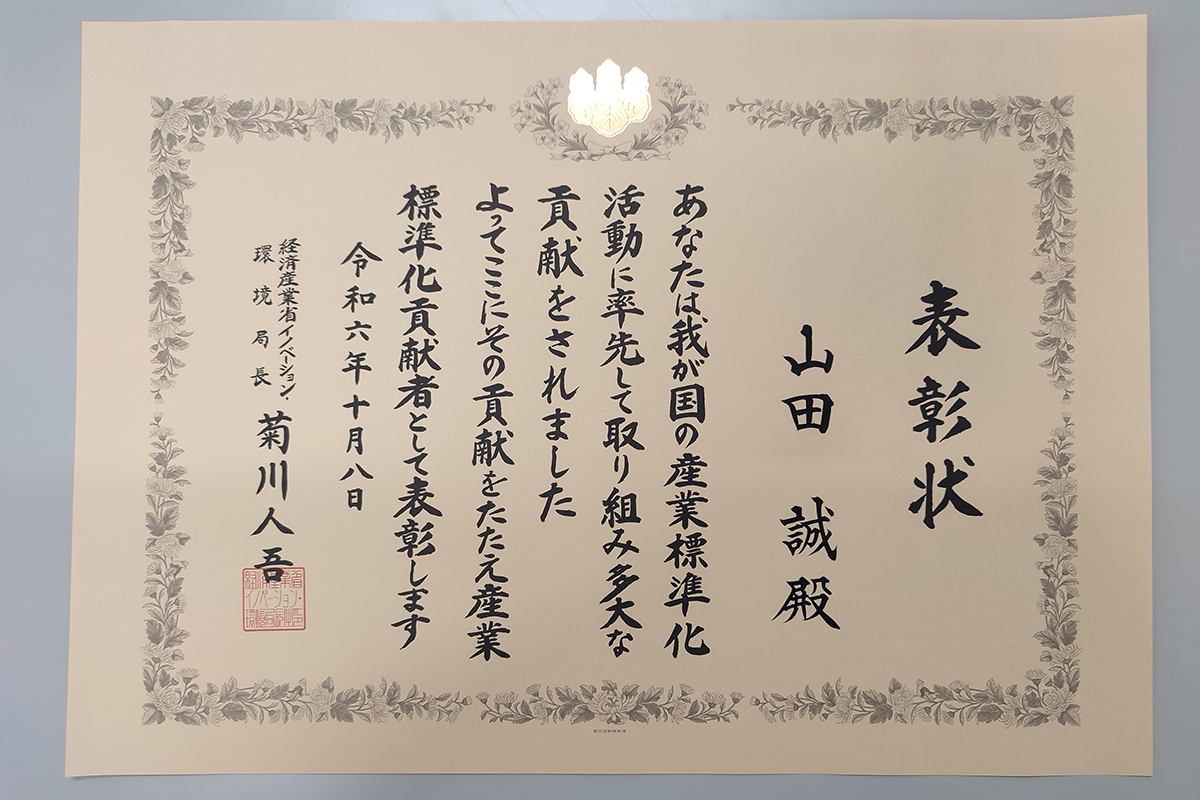 表彰状
山田 誠 殿
あなたは我が国の産業標準化
活動に率先して取り組み多大な
貢献をされました
よってここにその貢献をたたえ産業
標準化貢献者として表彰します
令和六年十月八日
経済産業省イノベーション・
環境局長 菊川人吾